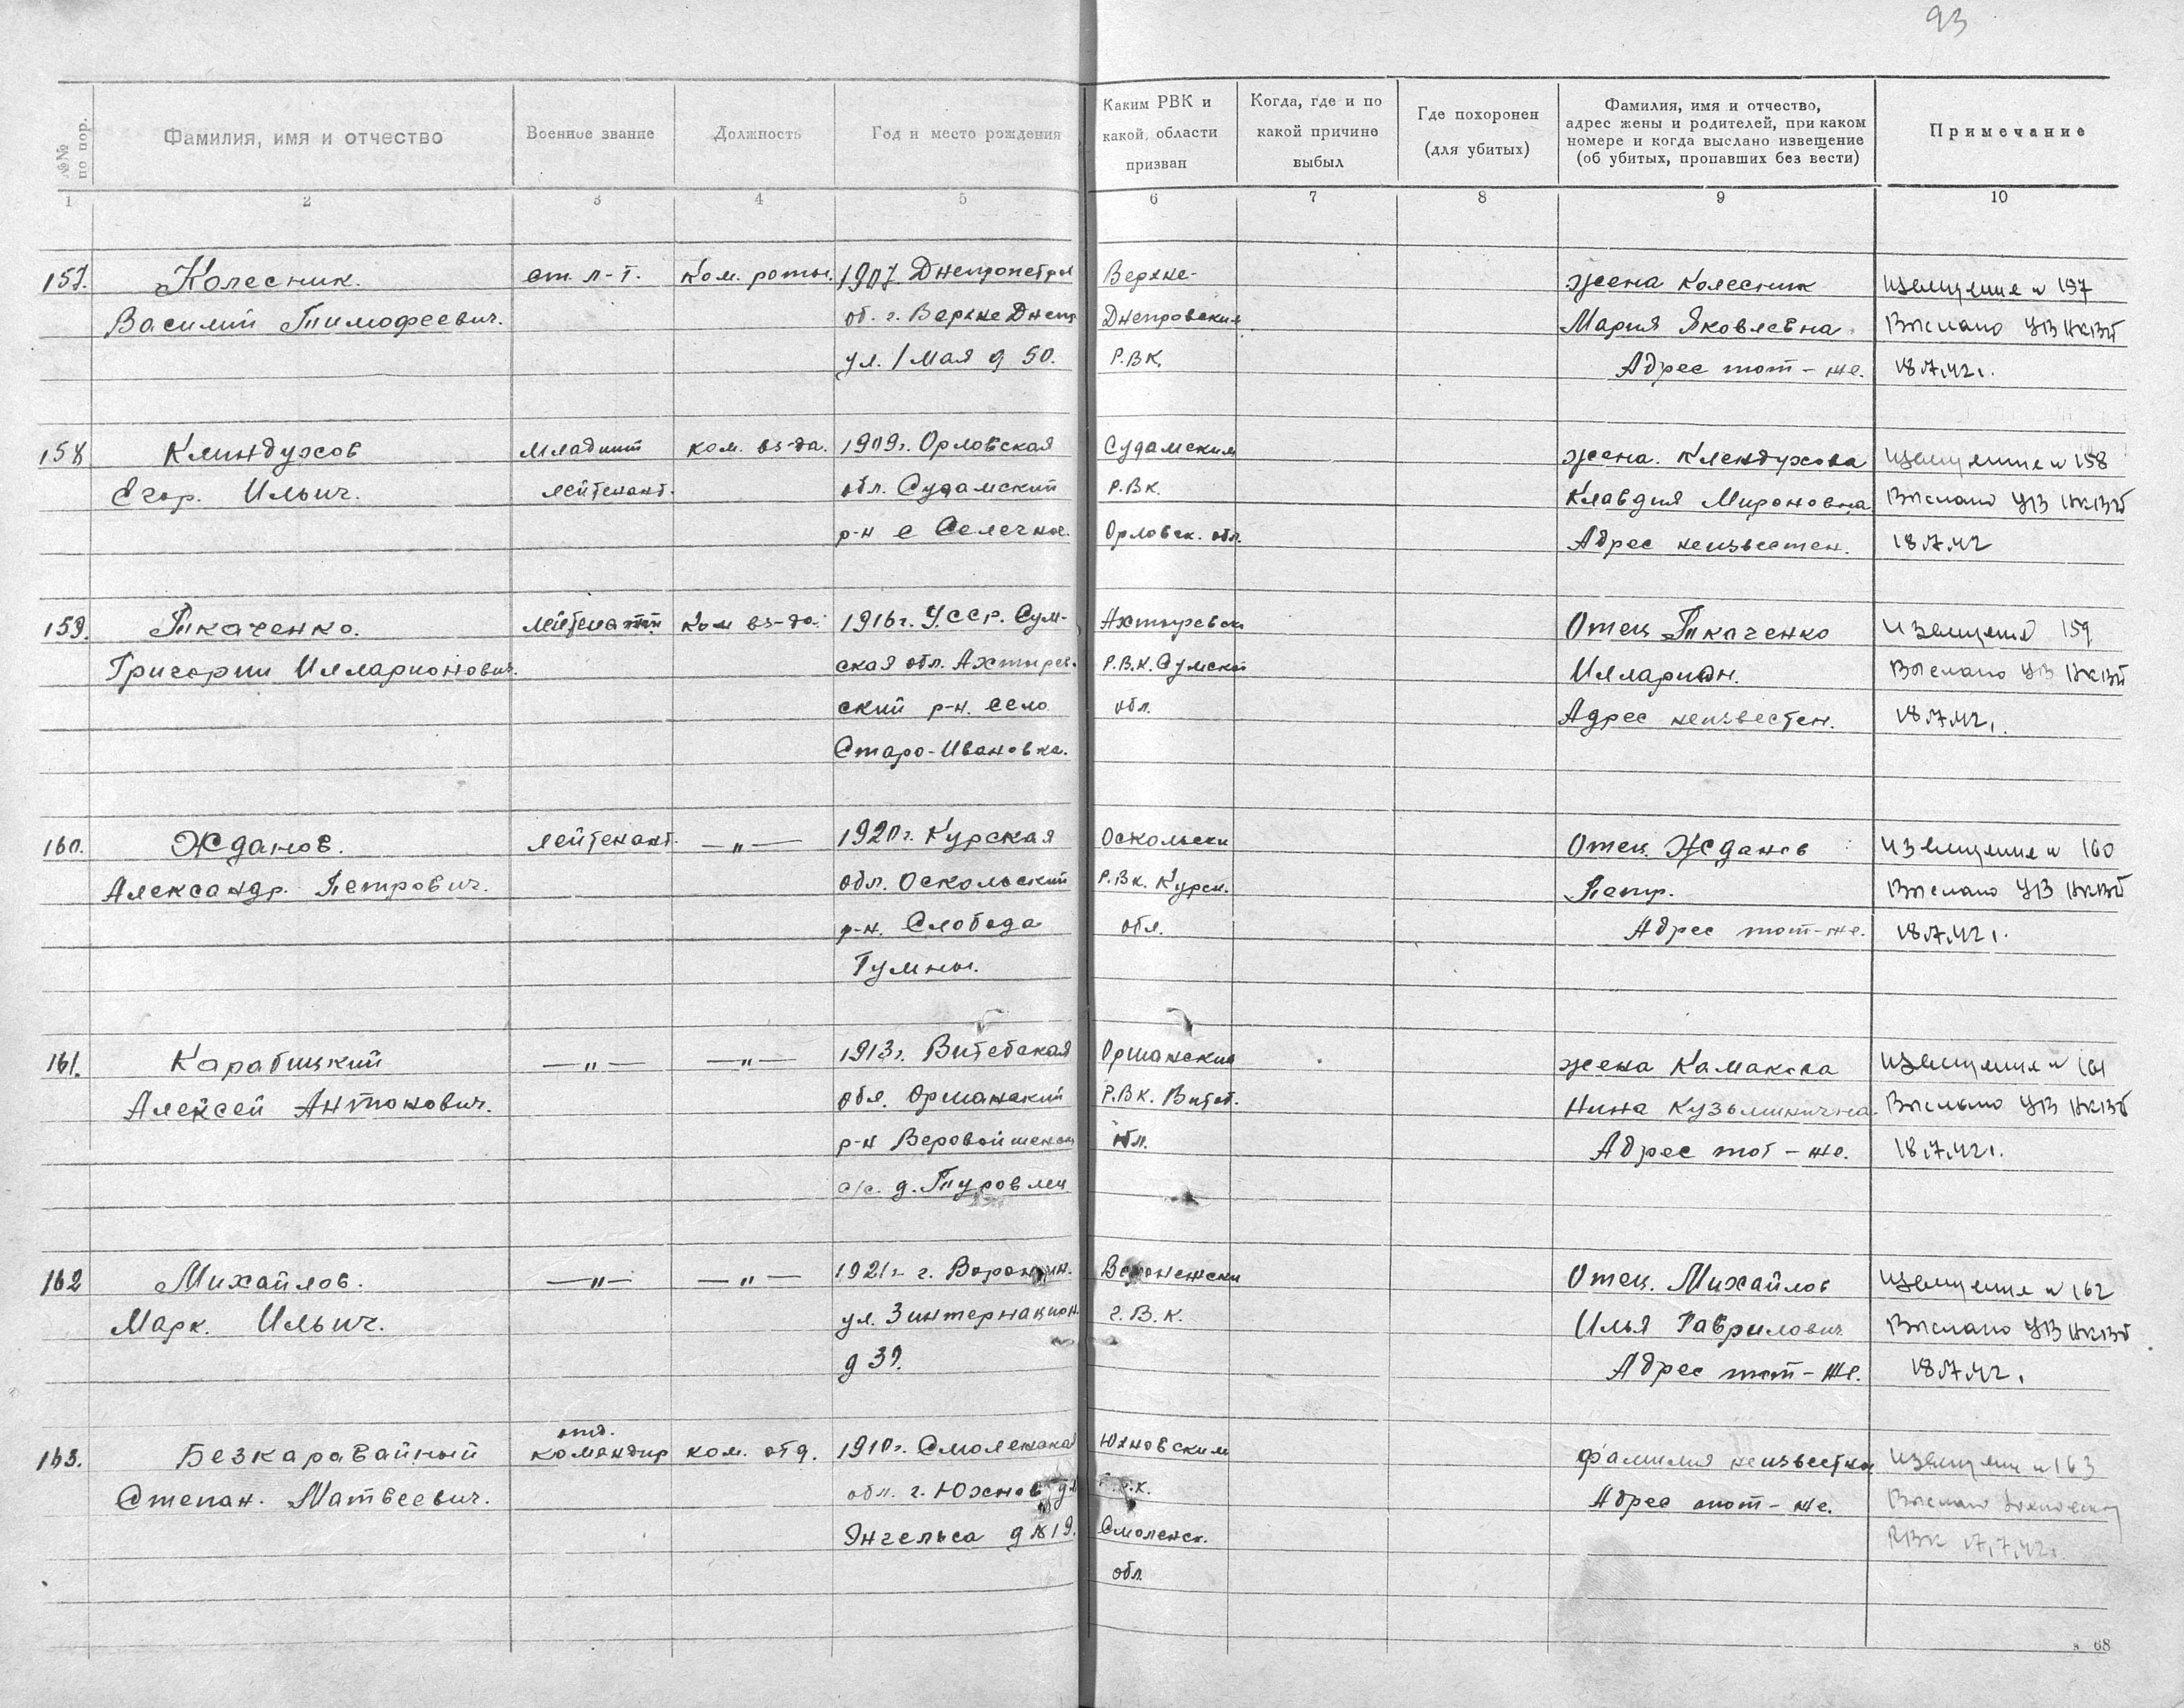 93
№№ по пор.
Фамилия, имя и отчество
Военное звание
Должность
Год и место рождения
Каким РВК и какой, области призван
Когда, где и по какой причине выбыл
Где похоронен (для убитых)
Фамилия, имя и отчество, адрес жены и родителей, при каком номере и когда выслано извещение (об убитых, пропавших без вести)
Примечание
1 2 3 4 5 6 7 8 9 10
157. Колесник. ст. л-т. Ком. роты. 1907. Днепропетр Верхне- жена Колесник извещение № 157
Василий Тимофеевич. об. г. Верхне Днепр Днепровским Мария Яковлевна. Выслано УВ НКВД
ул. 1 Мая д 50. Р.В.К. Адрес тот-же. 18.7.42г.
158 Клиндухов младший ком. вз-да. 1909г. Орловская Судамским жена. Клендухова извещение № 158
Егор. Ильич. лейтенант. обл. Судамский Р.ВК. Клавдия Мироновна Выслано УВ НКВД
р-н с Селечное. Орловск. обл. Адрес неизвестен. 18.7.42
159. Ткаченко. лейтенант ком вз-да. 1916г. УССР. Сум- Ахтыревски Отец Ткаченко извещение 159
Григорий Илларионович. ская обл. Ахтырев. Р.В.К. Сумской Илларион. Выслано УВ НКВД
ский р-н. село обл. Адрес неизвестен. 18.7.42г.
Старо-Ивановка.
160. Жданов. лейтенант. —"— 1920г. Курская Оскольски Отец. Жданов извещение № 160
Александр. Петрович. обл. Оскольский Р.ВК. Курск. Петр. Выслано УВ НКВД
р-н. Слобода обл. Адрес тот-же. 18.7.42г.
Гумны.
161. Карабицкий —"— —"— 1913г. Витебская Оршанским жена Камакова извещение № 161
Алексей Антонович. обл. Оршанский Р.ВК. Витеб. Нина Кузьминична. Выслано УВ НКВД
р-н обл. Адрес тот-же. 18.7.42г.
с/с. д.
162 Михайлов. —"— —"— 1921г г. Воронеж. Воронежски Отец. Михайлов извещение № 162
Марк. Ильич. ул. 3 интернацион. Г.В.К. Илья Гаврилович Выслано УВ НКВД
д 39. Адрес тот-же. 18.7.42.
отд.
163. Безкаравайный командир ком. отд. 1910г. Смоленская Юхновским фамилия неизвестна извещение № 163
Степан. Матвеевич. обл. г. Юхнов ул Р.В.К. Адрес тот-же. Выслано Юхновскому
Энгельса д № 19. Смоленск. РВК 17.7.42г.
обл.
68